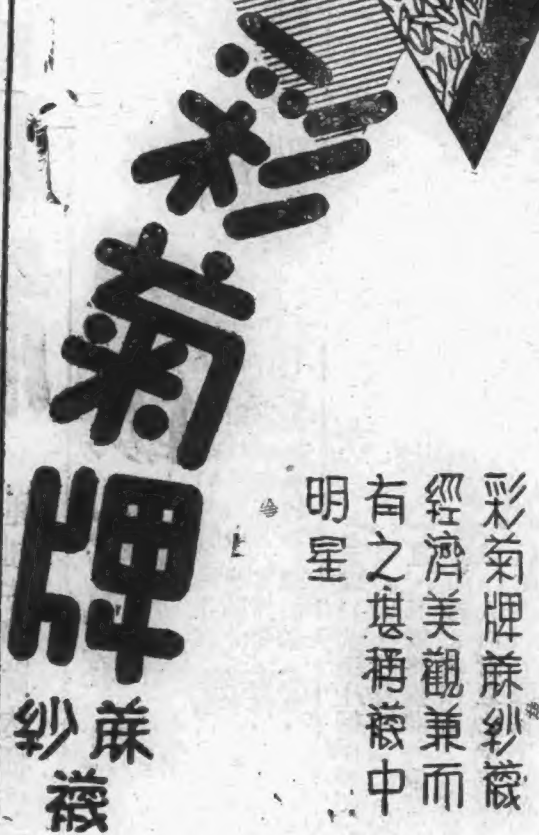 彩菊牌
蔴紗
襪
彩菊牌蔴紗襪
經濟美觀兼而
有之堪稱襪中
明星